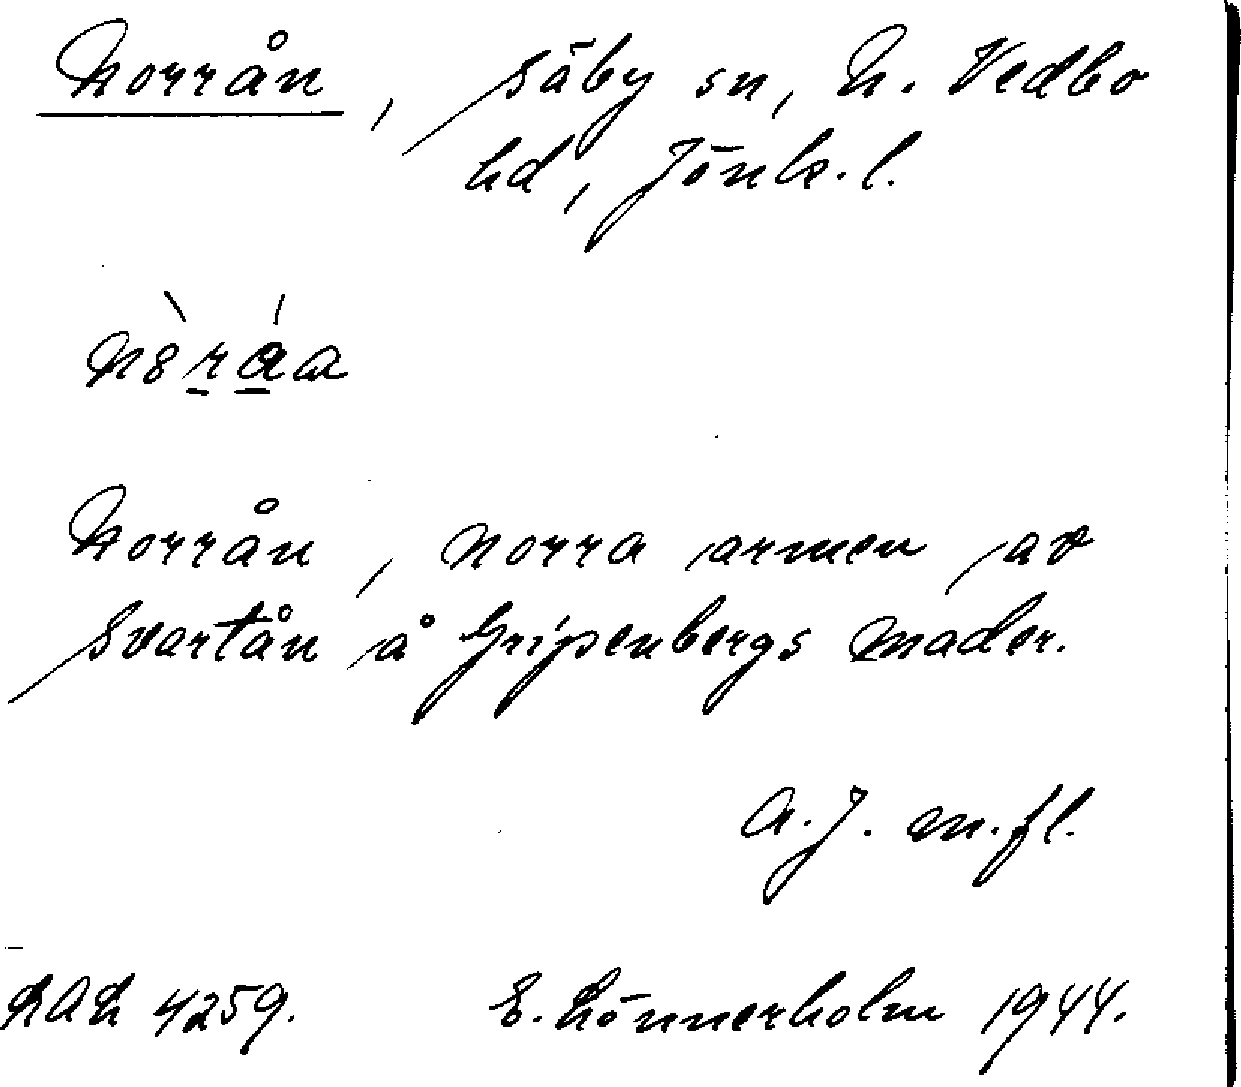 Norrån, Säby sn, N. Vedbo
hd, Jönk. l.
Norrån, norra armen av
Svartån å Gripenbergs mader.
A.J. m.fl.
E. Lönnerholm 1944.